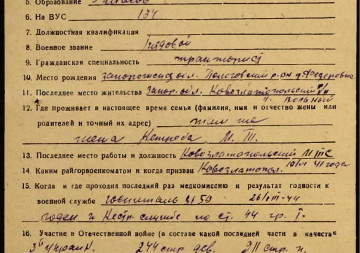 5. Образование
6. На ВУС 134
7. Должностная квалификация
8. Военное звание рядовой
9. Гражданская специальность тракторист
10. Место рождения Запорожской обл. Пологовский р-он
11. Последнее место жительства Запор. обл. Новозлатопольский р-н
12. Где проживает в настоящее время семья (фамилия, имя и отчество жены или
родителей и точный их адрес) там же
жена М. Т.
13. Последнее место работы и должность Новозлатопольский МТС
14. Каким райгорвоенкоматом и когда призван Новозлатопол. 41 года
15. Когда и где проходил последний раз медкомиссию и результат годности к
военной службе госпиталь 2159 26/VIII-44
годен к по ст. 44 гр. I
16. Участие в Отечественной войне (в составе какой последней части в качестве
3й Украин. 244 стр. див. 911 стр. п.